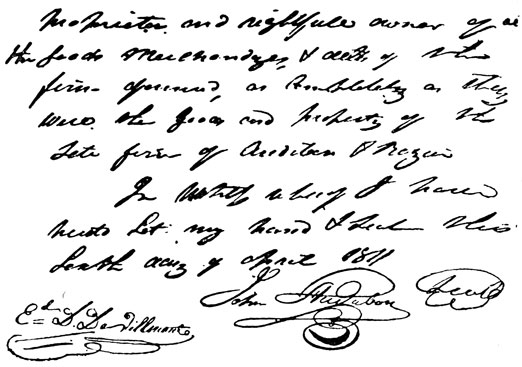 proprietor and rightfull owner of all
the goods Merchandizes, & debts of the
firm afores aid, as completely as they
were the goods and property of the
late firm of Audubon & Rozier
In witness whereof I have
hereto Set my hand & Seal this
Sixth day of April 1811
John Audubon Seal
Ed. D. DeVillamonte